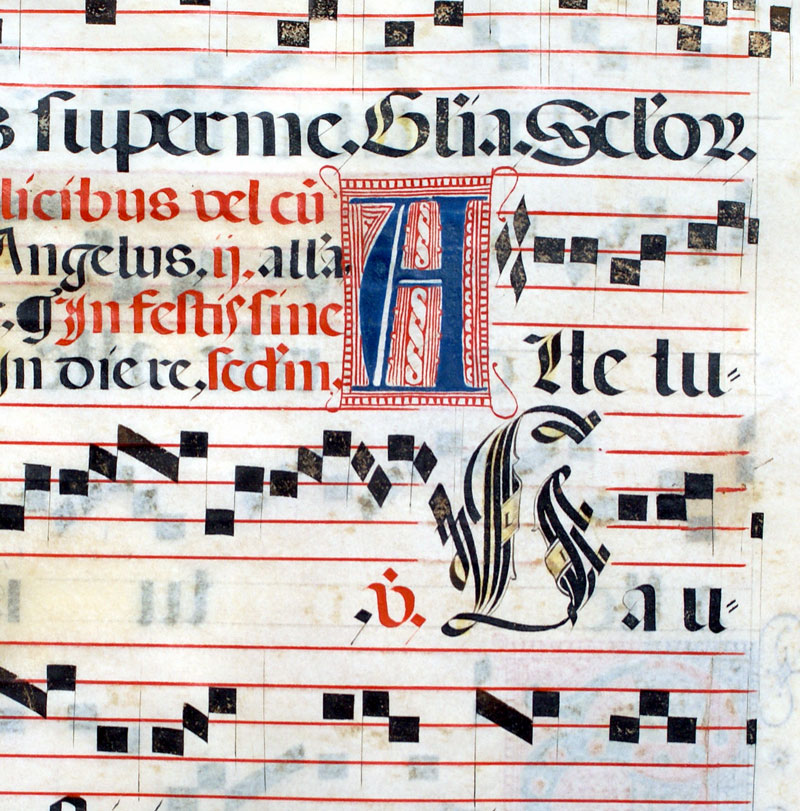 s super me. Gli'a. Sclor.
licibus vel cū
Angelus, ij. all'a.
In festis sine
In die re, scd'm.
A Lle lu=
.V. L au=